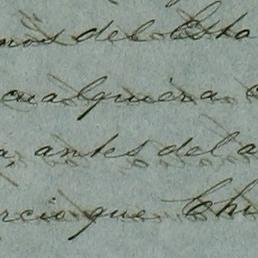 nos del Esta
cualquiera
antes del a
rcio que Chi